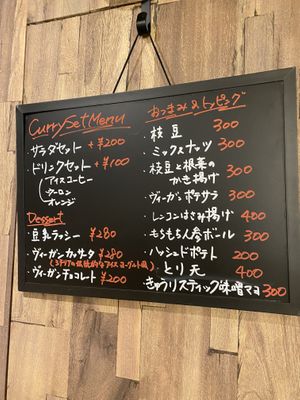 Curry Set Menu
・サラダセット +¥200
・ドリンクセット +¥100
アイスコーヒー
ウーロン
オレンジ
Dessert
・豆乳ラッシー ¥280
・ヴィーガンカッサータ ¥280
(シチリアの伝統的なアイスヨーグルト風)
・ヴィーガンチョコレート ¥200
おつまみ&トッピング
・枝豆 300
・ミックスナッツ 300
・枝豆と根菜の
かき揚げ 300
・ヴィーガンポテサラ 300
・レンコンはさみ揚げ 400
・もちもち人参ボール 300
・ハッシュドポテト 200
・とり天 400
・きゅうりスティック味噌マヨ 300